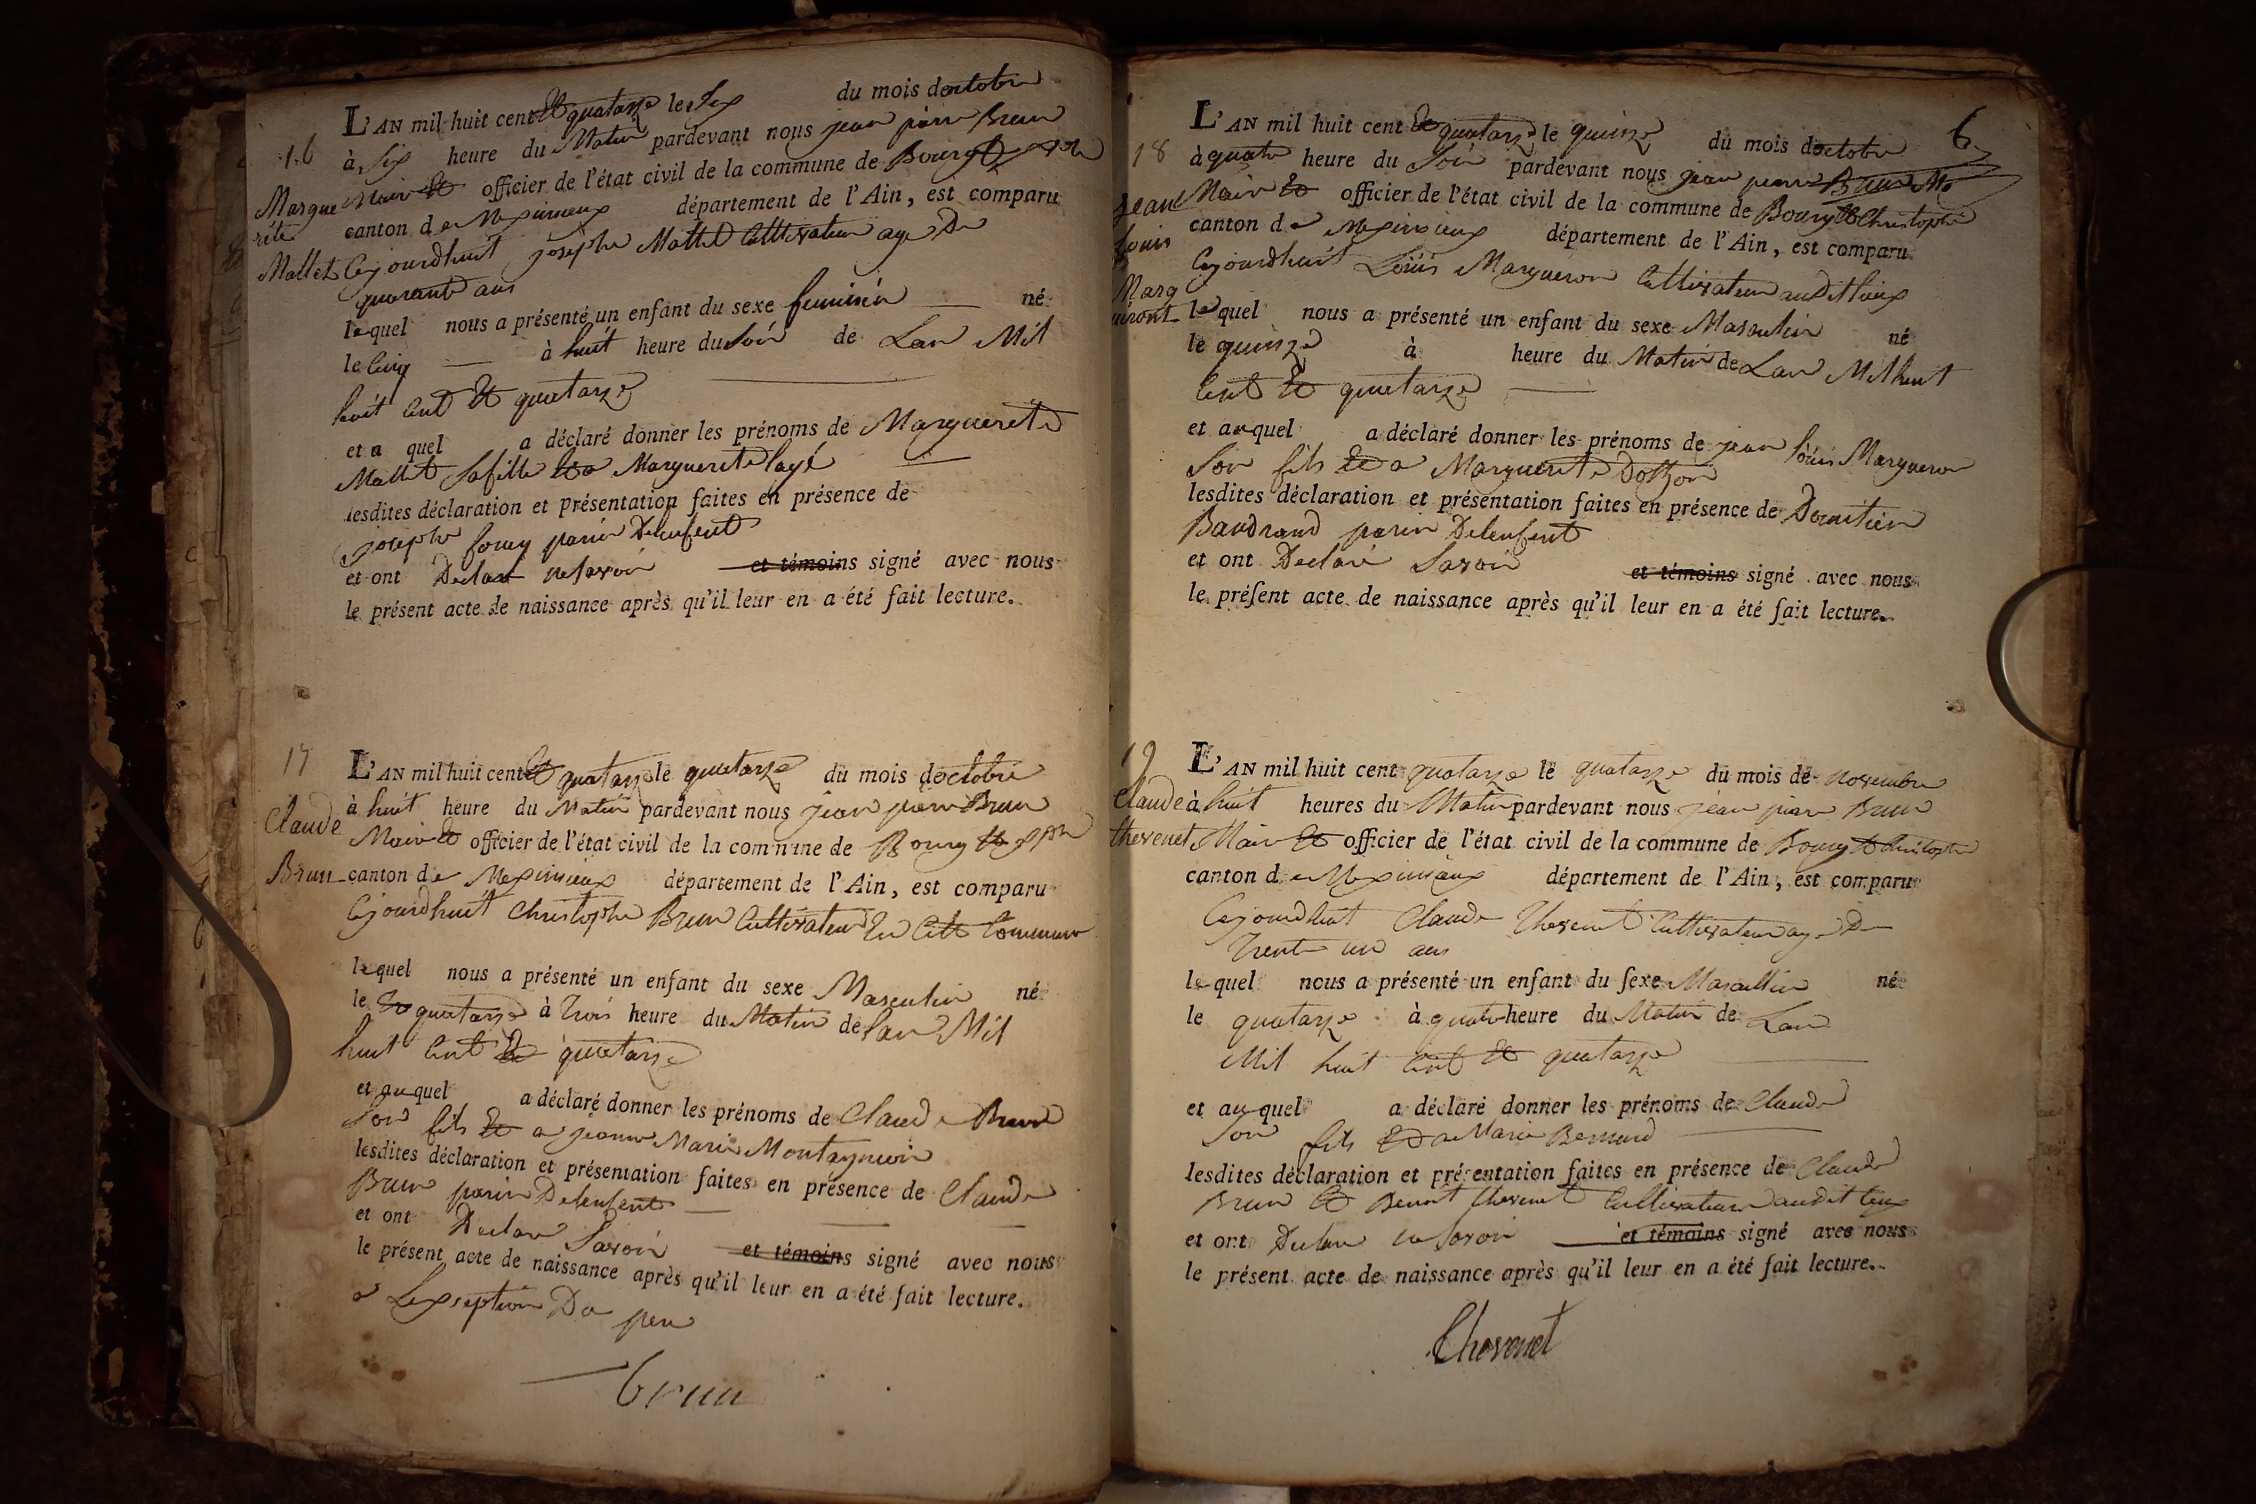 16
Margue
rite
Mallet
L'AN mil huit cent Et quatorze le six du mois doctobre
à six heure du Matin pardevant nous jean pierre Brun
Maire Et officier de l'état civil de la commune de Bourg St
canton de Meximieux département de l'Ain, est comparu
Cejourdhuit josephe Mallet Cultivateur age De
quarante ans
lequel nous a présenté un enfant du sexe feminin né
le Cinq à huit heure du soir de Lan Mil
huit Cent Et quatorze
et a quel a déclaré donner les prénoms de Marguerite
Mallet sa fille Et a Marguerite layé
lesdites déclaration et présentation faites en présence de
josephe parin Delenfent
et ont Declaré ne savoir et témoins signé avec nous
le présent acte de naissance après qu'il leur en a été fait lecture.
17
Claude
Brun
L'AN mil huit cent Et quatorze le quatorze du mois doctobre
à huit heure du Matin pardevant nous jean pierre Brun
Maire Et officier de l'état civil de la commune de Bourg St
canton de Meximieux département de l'Ain, est comparu
Cejourdhuit Christophe Brun Cultivateur En Cette Commune
lequel nous a présenté un enfant du sexe Masculin né
le quatorze à Trois heure du Matin de lan Mil
huit Cent Et quatorze
et au quel a déclaré donner les prénoms de Claude Brun
Son fils Et a jeanne Marie Montagneux
lesdites déclaration et présentation faites en présence de Claude
Brun parin Delenfent
et ont Declaré Savoir et témoins signé avec nous
le présent acte de naissance après qu'il leur en a été fait lecture.
a Lexseption Du pere
brun
6
18
jean
louis
Marg
ueront
L'AN mil huit cent Et quatorze le quinze du mois doctobre
à quatre heure du Soir pardevant nous jean pierre Brun
Maire Et officier de l'état civil de la commune de Bourg St Christophe
canton de Meximieux département de l'Ain, est comparu
Cejourdhuit Louis Margueron Cultivateur audit lieux
lequel nous a présenté un enfant du sexe Masculin né
le quinze à heure du Matin de Lan Mil huit
Cent Et quatorze
et au quel a déclaré donner les prénoms de jean louis Margueron
Son fils Et a Marguerite
lesdites déclaration et présentation faites en présence de
Baudrand parin Delenfent
et ont Declaré Savoir et témoins signé avec nous
le présent acte de naissance après qu'il leur en a été fait lecture.
19
Claude
thevenet
L'AN mil huit cent quatorze le quatorze du mois de novembre
à huit heures du Matin pardevant nous jean pierre Brun
Maire Et officier de l'état civil de la commune de Bourg St Christophe
canton de Meximieux département de l'Ain, est comparu
Cejourdhuit Claude Thevenet Cultivateur age De
Trente un ans
lequel nous a présenté un enfant du sexe Masculin né
le quatorze à quatre heure du Matin de Lan
Mil huit Cent Et quatorze
et au quel a déclaré donner les prénoms de Claude
Son fils Et a Marie Bernard
lesdites déclaration et présentation faites en présence de Claude
Brun Et Benoit thevenet Cultivateur audit lieux
et ont Declaré ne Savoir et témoins signé avec nous
le présent acte de naissance après qu'il leur en a été fait lecture.
Thevenet